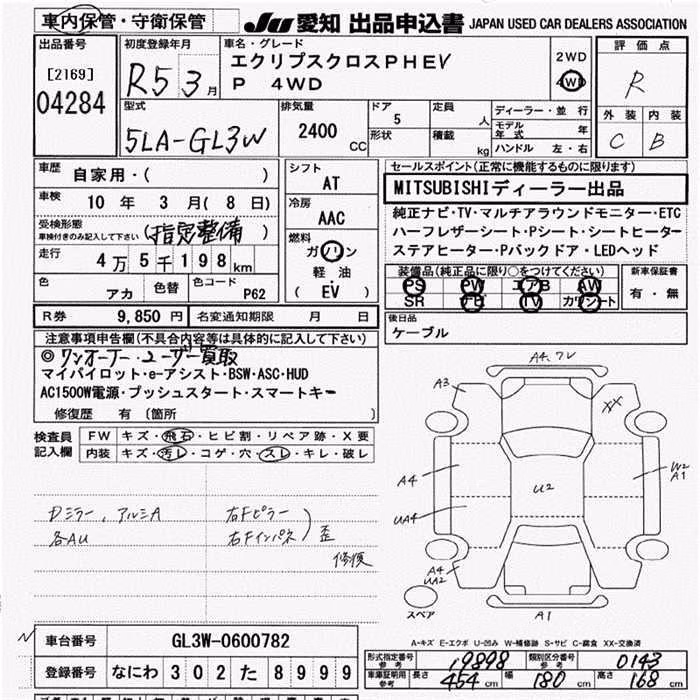 車内保管・守衛保管
JU 愛知 出品申込書 JAPAN USED CAR DEALERS ASSOCIATION
出品番号
[2169]
04284
初度登録年月
R5 3月
車名・グレード
エクリプスクロスPHEV
P 4WD
2WD
4WD
評価点
R
外装 内装
C B
型式
5LA-GL3W
排気量
2400 CC
ドア
5
形状
定員
人
積載
kg
ディーラー・並行
モデル年式 年
ハンドル 左・右
車歴
自家用・( )
車検
10年 3月(8日)
受検形態
車検付きのみ記入して下さい
(指定整備)
走行
4万5千198km
色
アカ
色替
色コード
P62
シフト
AT
冷房
AAC
燃料
ガソリン
軽油・
(EV)
R券 9,850円
名変通知期限 月 日
セールスポイント(正常に機能するものに限ります)
MITSUBISHIディーラー出品
純正ナビ・TV・マルチアラウンドモニター・ETC
ハーフレザーシート・Pシート・シートヒーター
ステアヒーター・Pバックドア・LEDヘッド
装備品(純正品に限り○をつけてください)
PS PW エアB AW
SR ナビ TV カワシート
新車保証書
有・無
後日品
ケーブル
注意事項申告欄(不具合内容等は具体的に記入して下さい)
◎ワンオーナー・ユーザー買取
マイパイロット・e-アシスト・BSW・ASC・HUD
AC1500W電源・プッシュスタート・スマートキー
修復歴 有 〔箇所 〕
検査員記入欄
FW キズ・飛石・ヒビ割・リペア跡・X要
内装 キズ・汚レ・コゲ・穴・スレ・キレ・破レ
Dミラー、アルミA
各AU
右Fピラー
右Fインパネ
歪
修復
A4.ワレ
A3
XX
A4
U2
W2
A1
UA4
A4
UA2
A1
スペア
A-キズ E-エクボ U-凹み W-補修跡 S-サビ C-腐食 XX-交換済
車台番号 GL3W-0600782
登録番号 なにわ 302 た 8999
形式指定番号参考 19898
類別区分番号参考 0143
車庫証明用参考 長さ 454 cm 幅 180 cm 高さ 168 cm